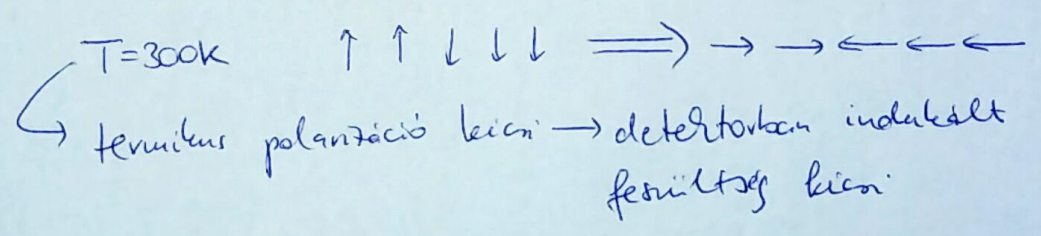 T=300K ↑ ↑ ↓ ↓ ↓ ⟹ → → ← ← ←
↳ termikus polarizáció kicsi → detektorban indukált
feszültség kicsi